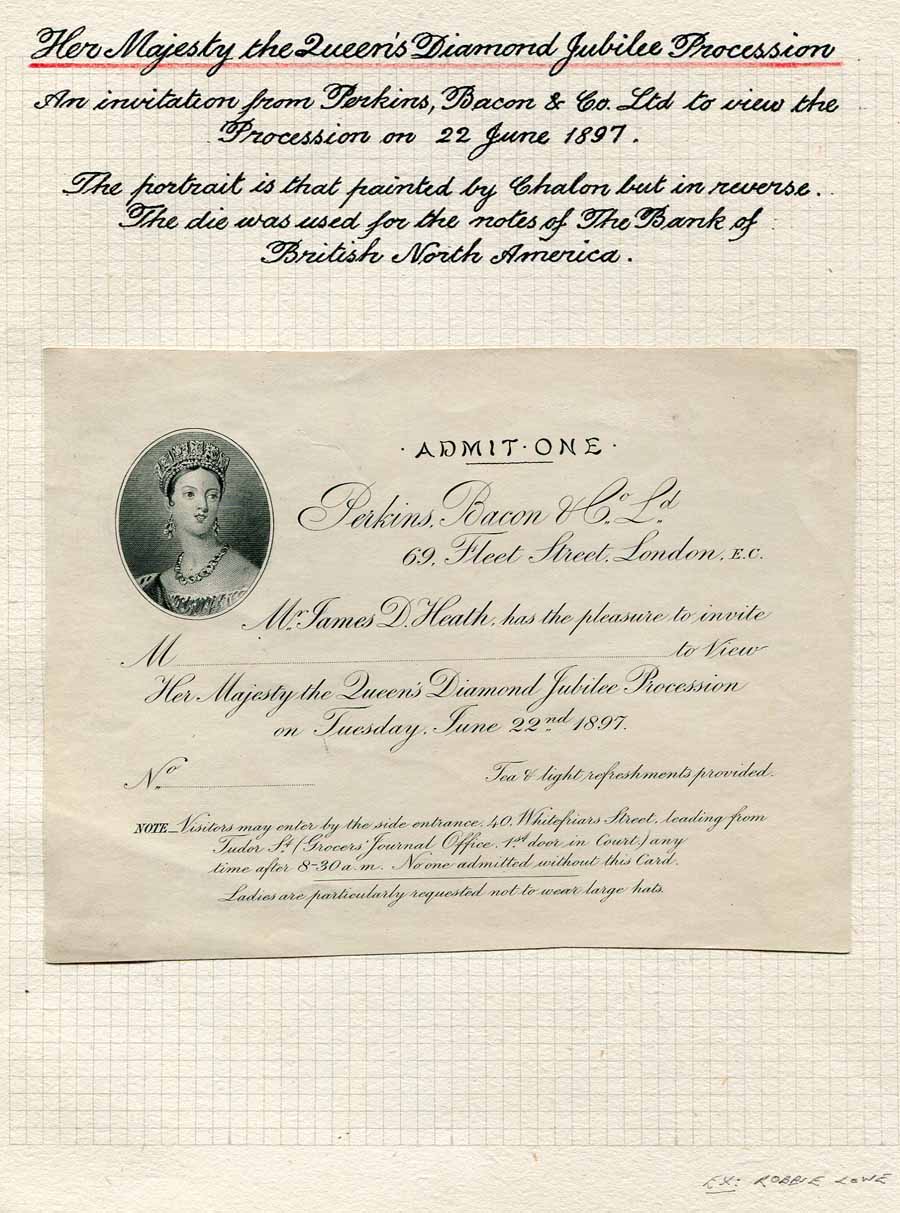 Her Majesty the Queen's Diamond Jubilee Procession
An invitation from Perkins, Bacon & Co. Ltd to view the
Procession on 22 June 1897.
The portrait is that painted by Chalon but in reverse.
The die was used for the notes of The Bank of
British North America.
· ADMIT · ONE ·
Perkins, Bacon & Co. Ld.
69, Fleet Street, London, E.C.
Mr. James D. Heath, has the pleasure to invite
M to View
Her Majesty the Queen's Diamond Jubilee Procession
on Tuesday, June 22nd 1897.
No
Tea & light refreshments provided.
NOTE_Visitors may enter by the side entrance, 40, Whitefriars Street, leading from
Tudor St. (Grocers' Journal Office, 1st door in Court.) any
time after 8-30 a.m. No one admitted without this Card.
Ladies are particularly requested not to wear large hats.
EX: ROBBIE LOWE